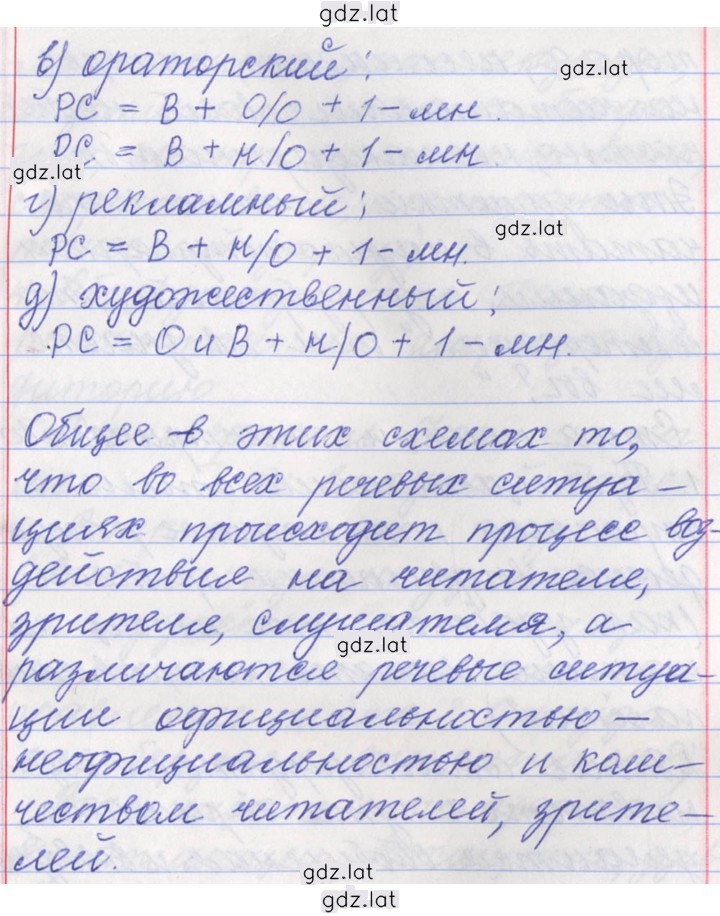 gdz.lat
в) ораторский:
gdz.lat
РС = В + О/О + 1 – мн.
РС = В + Н/О + 1 – мн.
gdz.lat
г) рекламный:
gdz.lat
РС = В + Н/О + 1 – мн.
д) художественный:
РС = О и В + Н/О + 1 – мн.
Общее в этих схемах то,
что во всех речевых ситуа-
циях происходит процесс воз-
действия на читателя,
зрителя, слушателя, а
gdz.lat
различаются речевые ситуа-
ции официальностью –
неофициальностью и коли-
чеством читателей, зрите-
лей.
gdz.lat
gdz.lat